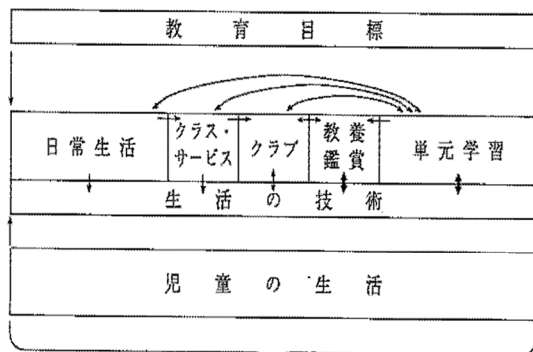 教育目標
日常生活
クラス・
サービス
クラブ
教養
鑑賞
単元学習
生活の技術
児童の生活